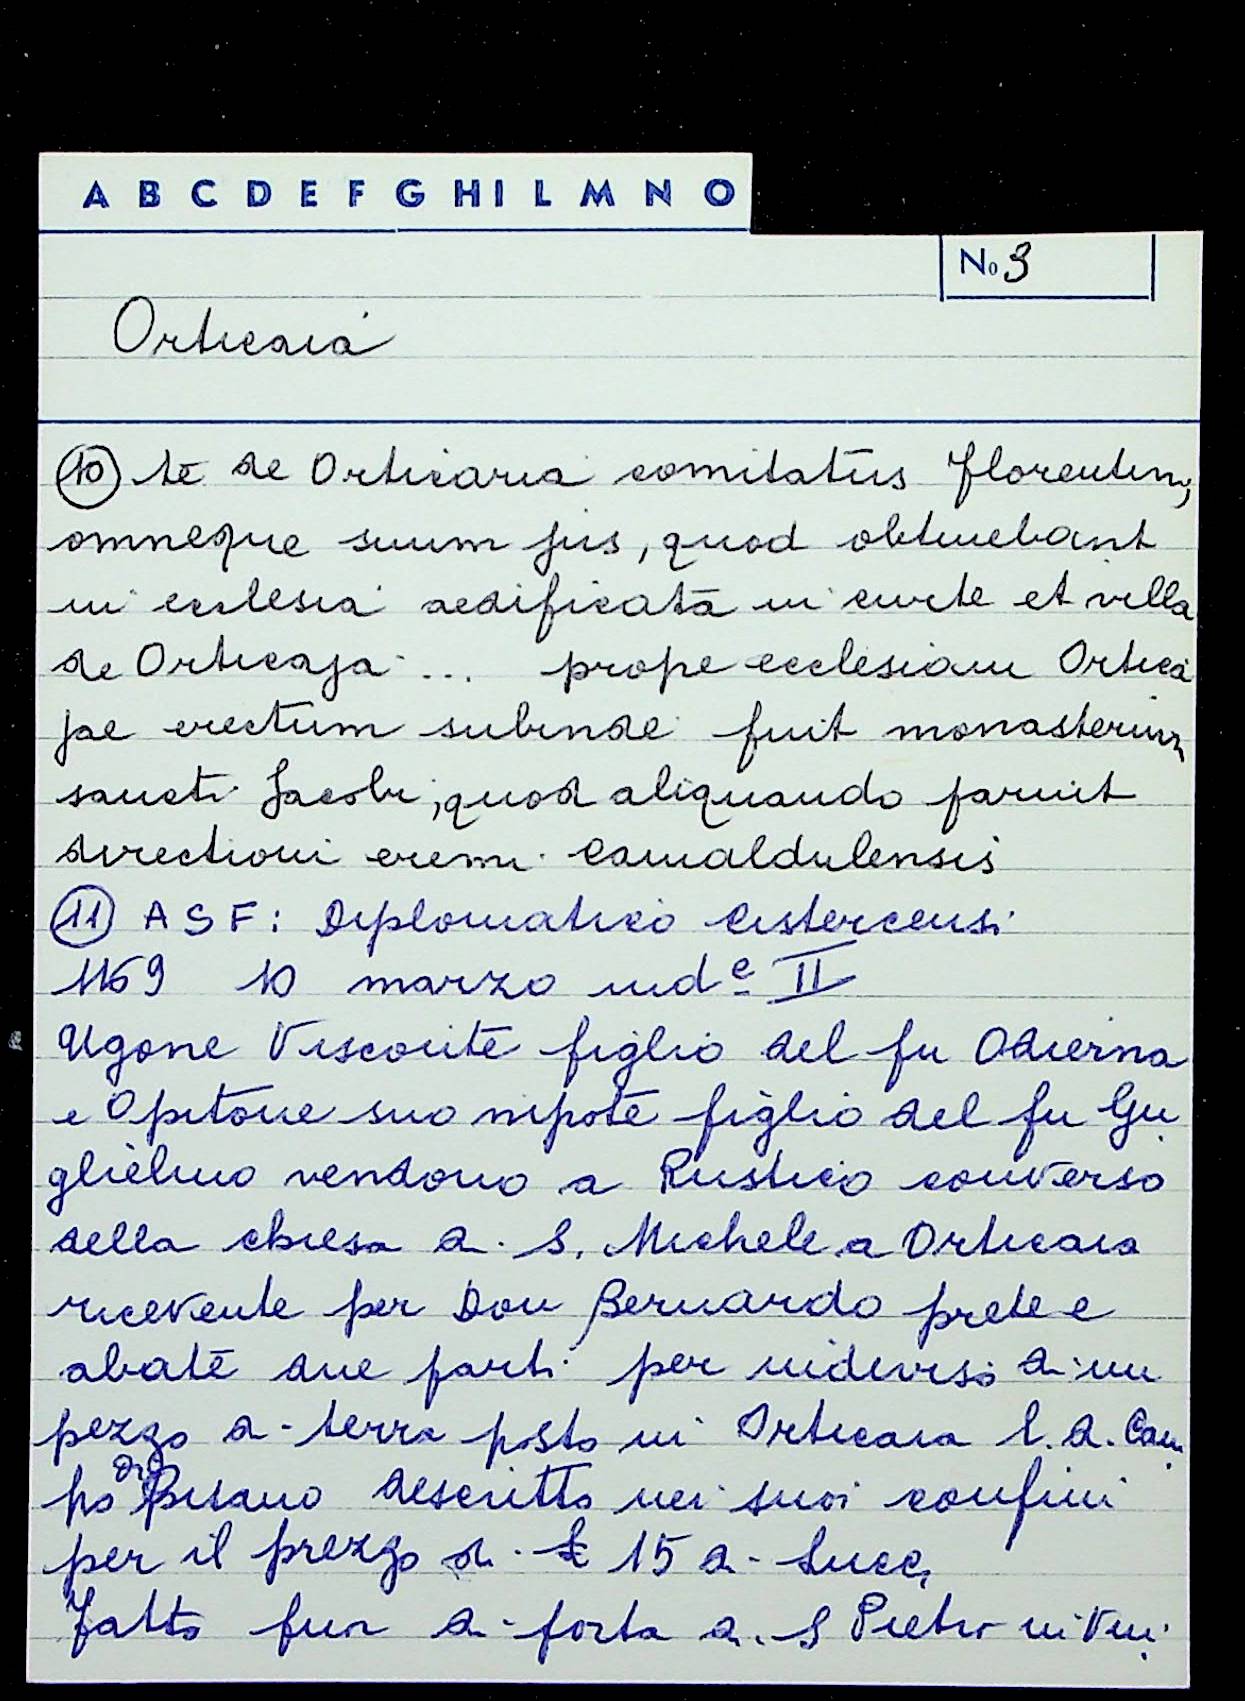 A B C D E F G H I L M N O
No 3
Orticaia
10 te de Orticaria comitatus Florentini,
omneque suum jus, quod obtinebant
in ecclesia aedificata in curte et villa
de Orticaja ... prope ecclesiam Ortica
jae erectum subinde fuit monasterium
sancti Jacobi, quod aliquando paruit
directioni eremi Camaldulensis
11 A S F: Diplomatico Cistercensi
1169 10 marzo ind e II
Ugone Visconte figlio del fu Odierna
e Opitone suo nipote figlio del fu Gu
glielmo vendono a Rustico converso
della chiesa di S. Michele a Orticaia
ricevente per Don Bernardo prete e
abate due parti per indiviso di un
pezzo di terra posto in Orticaia l.d. Cam
po di Pisano descritto nei suoi confini
per il prezzo di £ 15 di Lucc.
Fatto fuor di porta di S Pietro in Vin